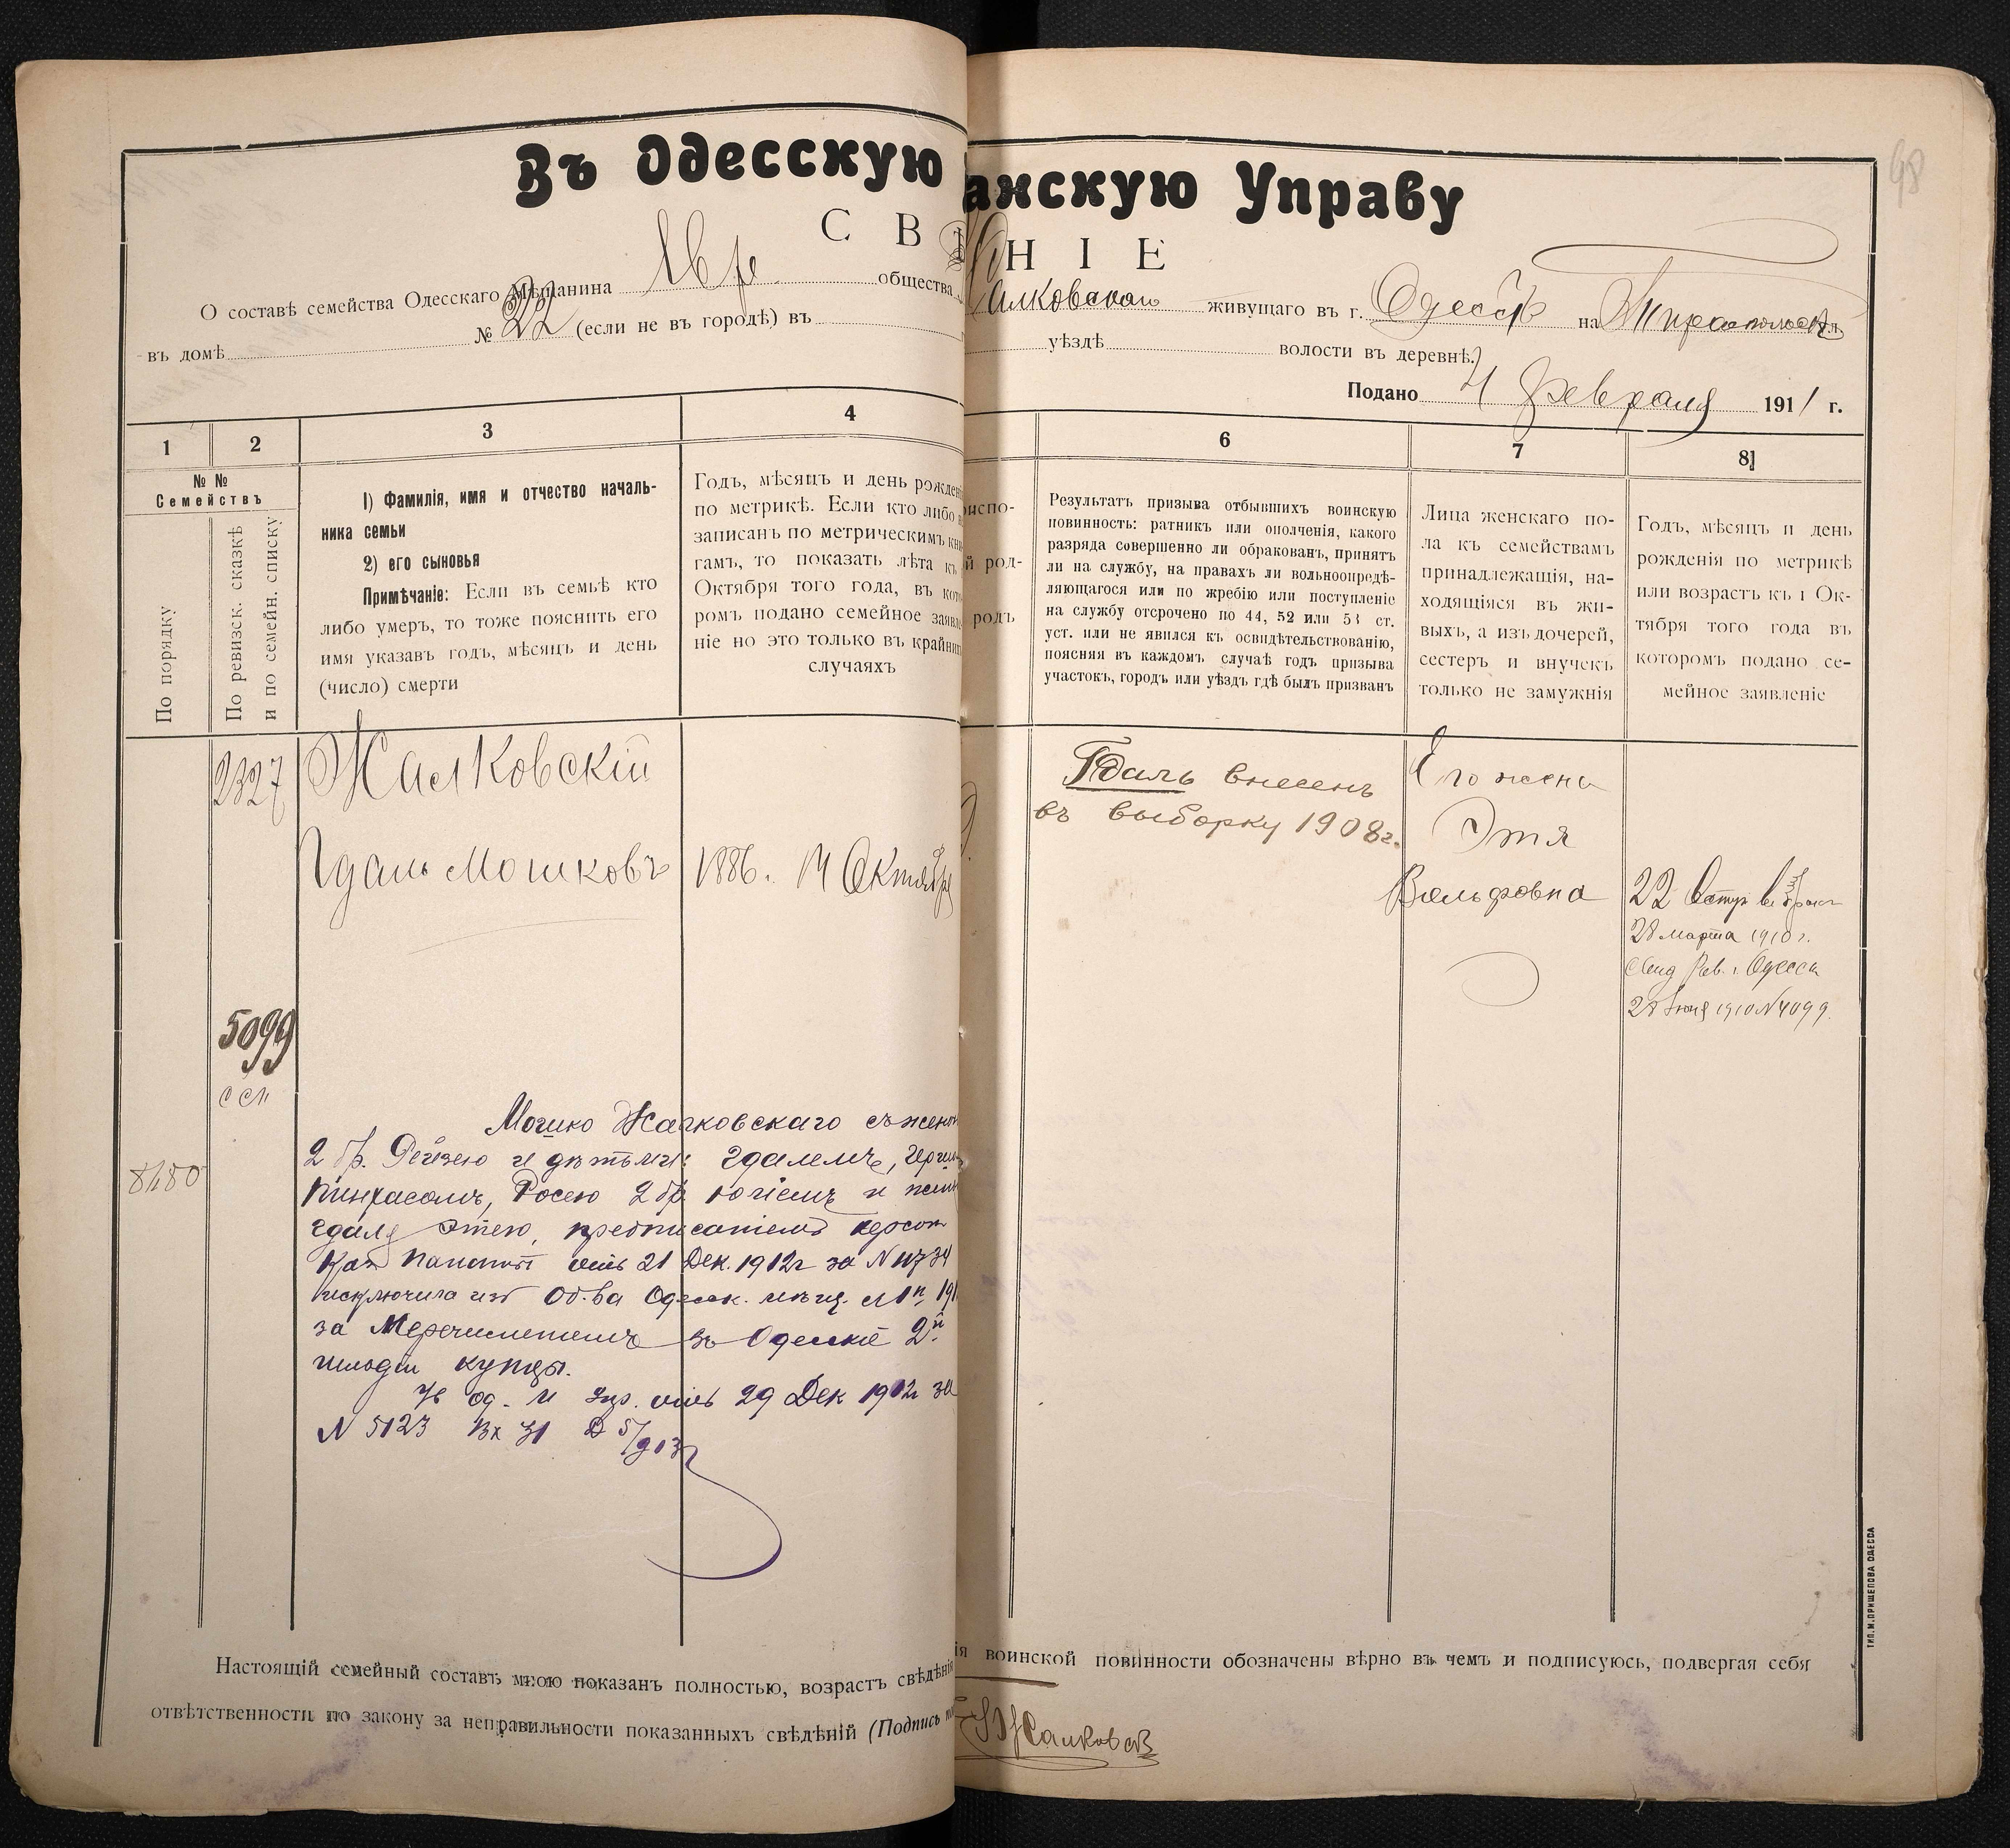 48
Въ Одесскую
анскую Управу
С В
Н І Е
О составѣ семейства Одесскаго Мѣщанина Евр. общества
алковскаго живущаго въ г. Одессѣ на Тираспольск
въ домѣ № 22 (если не въ городѣ) въ
уѣздѣ волости въ деревнѣ
Подано 4 Февраля 1911 г.
1
2
3
4
6
7
8
№ №
Семействъ
По порядку
По ревизск. сказкѣ
и по семейн. списку
1) Фамилія, имя и отчество началь-
ника семьи
2) его сыновья
Примѣчаніе: Если въ семьѣ кто
либо умеръ, то тоже пояснить его
имя указавъ годъ, мѣсяцъ и день
(число) смерти
Годъ, мѣсяцъ и день рожден
по метрикѣ. Если кто либо
записанъ по метрическимъ кни
гамъ, то показать лѣта къ
Октября того года, въ кото
ромъ подано семейное заявле
ніе но это только въ крайни
случаяхъ
испо-
й род-
родъ
Результатъ призыва отбывшихъ воинскую
повинность: ратникъ или ополченія, какого
разряда совершенно ли обракованъ, принятъ
ли на службу, на правахъ ли вольноопредѣ-
ляющагося или по жребію или поступленіе
на службу отсрочено по 44, 52 или 53 ст.
уст. или не явился къ освидѣтельствованію,
поясняя въ каждомъ случаѣ годъ призыва
участокъ, городъ или уѣздъ гдѣ былъ призванъ
Лица женскаго по-
ла къ семействамъ
принадлежащія, на-
ходящіяся въ жи-
выхъ, а изъ дочерей,
сестеръ и внучекъ
только не замужнія
Годъ, мѣсяцъ и день
рожденія по метрикѣ
или возрастъ къ 1 Ок-
тября того года въ
которомъ подано се-
мейное заявленіе
2327 Жалковскій
Гдаль Мошковъ 1886. 14 Октября
Гдаль внесенъ
въ выборку 1908г.
Его жена
Этя
Вольфовна
22 Вступ въ бракъ
28 марта 1910 г.
Свид Рав. г. Одессы
28 Іюня 1910 N4099.
5099
8480
Мошко Жалковскаго съ женою
2 бр. Рейзею и дѣтьми: Гдалемъ, Герш
Пинхасомъ, Росею 2 бр и женою
Гдаля Этею, предписаніемъ Херсон
Каз Палаты отъ 21 Дек. 1912г за N 11734
исключила изъ Об-ва Одесск. мѣщ. 191
за перечисленіемъ въ Одесскіе 2й
гильдіи купцы.
Ув од. м упр. отъ 29 Дек 1912г за
N 5123 Вх 31 Д 5/913г
Настоящій семейный составъ мною показанъ полностью, возрастъ свѣдѣнія
ія воинской повинности обозначены вѣрно въ чемъ и подписуюсь, подвергая себя
отвѣтственности по закону за неправильности показанныхъ свѣдѣній (Подпись
Жалковск
ТИП. М. ПРИЩЕПОВА ОДЕССА